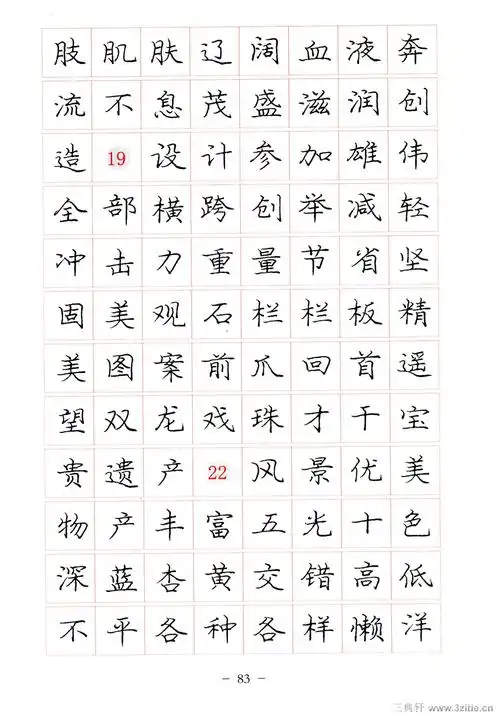 肢肌肤辽阔血液奔
流不息茂盛滋润创
造19设计参加雄伟
全部横跨创举减轻
冲击力重量节省坚
固美观石栏栏板精
美图案前爪回首遥
望双龙戏珠才干宝
贵遗产22风景优美
物产丰富五光十色
深蓝杏黄交错高低
不平各种各样懒洋
- 83 -
三典轩 www.3zitie.cn